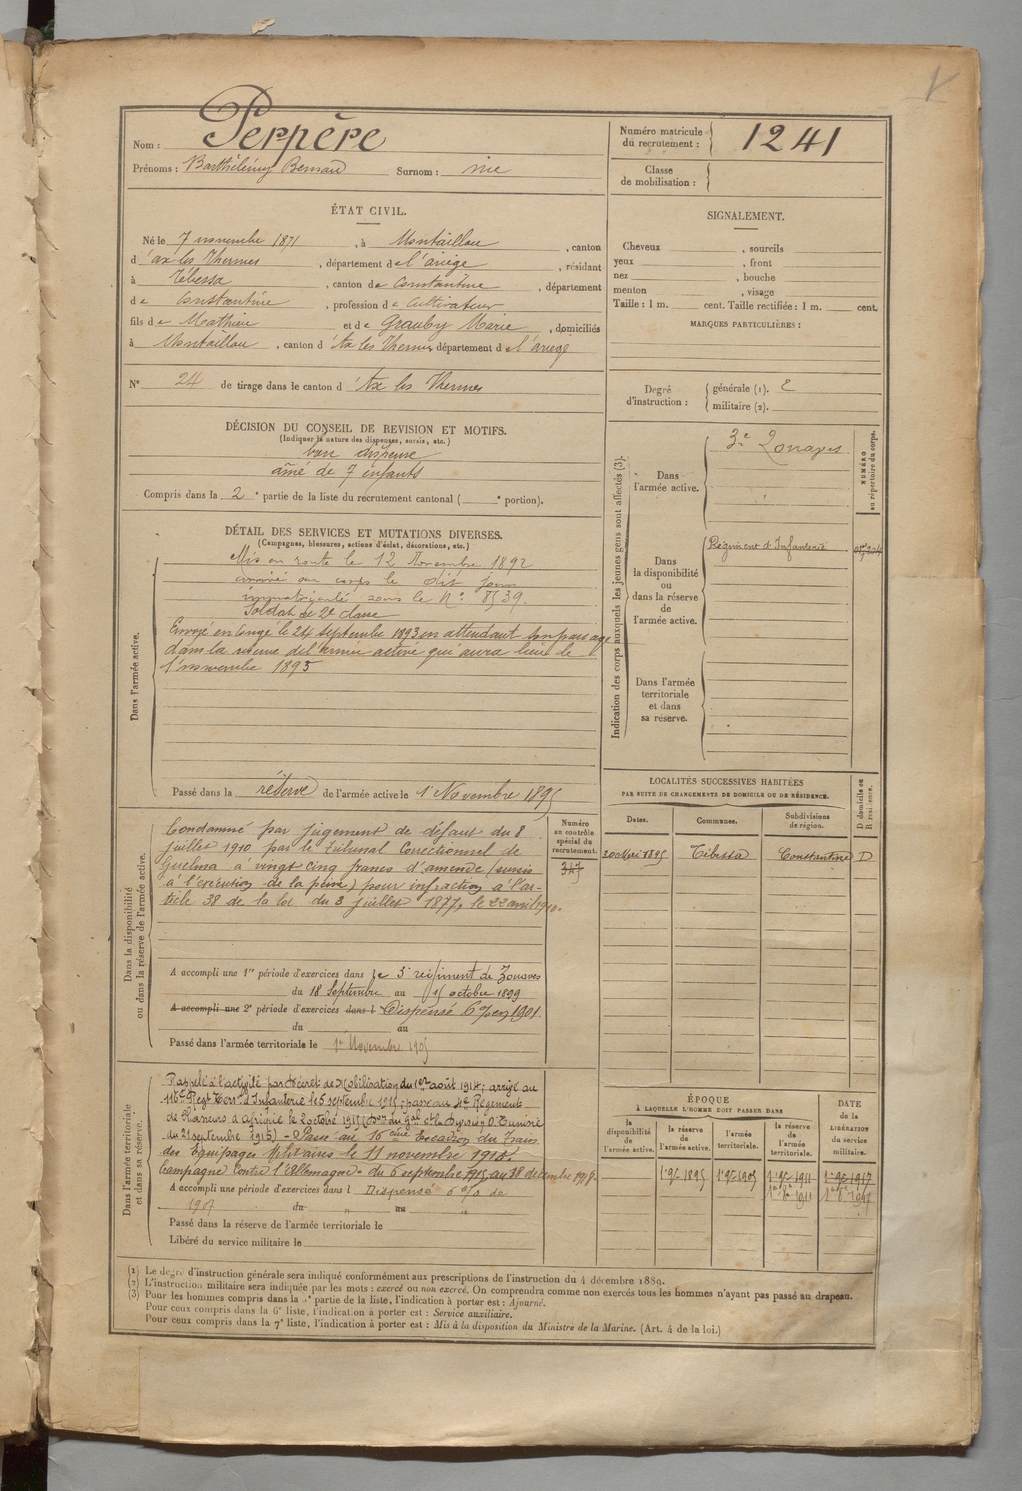 Nom : Perpère
Prénoms : Barthélémy Bernard Surnom : nie
Numéro matricule du recrutement : 1241
Classe de mobilisation :
ÉTAT CIVIL.
Né le 7 novembre 1871, à Montaillou, canton
d'ax les Thermes, département de l'ariège, résidant
à Tébessa, canton de Constantine, département
de Constantine, profession de Cultivateur
fils de Mathieu et de Grauby Marie, domiciliés
à Montaillou, canton d'Ax les Thermes, département de l'ariège
N° 24 de tirage dans le canton d'Ax les Thermes
DÉCISION DU CONSEIL DE REVISION ET MOTIFS.
(Indiquer la nature des dispenses, sursis, etc.)
bon dispensé
aîné de 7 enfants
Compris dans la 2e partie de la liste du recrutement cantonal ( e portion).
SIGNALEMENT.
Cheveux , sourcils
yeux , front
nez , bouche
menton , visage
Taille : 1 m. cent. Taille rectifiée : 1 m. cent.
MARQUES PARTICULIÈRES :
Degré d'instruction : générale (1). 2
militaire (2).
Indication des corps auxquels les jeunes gens sont affectés (3).
NUMÉRO au répertoire du corps.
Dans l'armée active.
3e Zouaves
Dans la disponibilité ou dans la réserve de l'armée active.
Régiment d'Infanterie
Dans l'armée territoriale et dans sa réserve.
DÉTAIL DES SERVICES ET MUTATIONS DIVERSES.
(Campagnes, blessures, actions d'éclat, décorations, etc.)
Dans l'armée active.
Mis en route le 12 Novembre 1892
arrivé au corps le dit jour
immatriculé sous le N° 8539.
Soldat de 2e classe
Envoyé en Congé le 24 septembre 1893 en attendant son passage
dans la réserve de l'armée active qui aura lieu le
1er novembre 1895
Passé dans la réserve de l'armée active le 1er Novembre 1895
Dans la disponibilité ou dans la réserve de l'armée active.
Condamné par jugement de défaut du 8
juillet 1910 par le Tribunal Correctionnel de
Guelma à vingt cinq francs d'amende (sursis
à l'exécution de la peine) pour infraction à l'ar-
ticle 38 de la loi du 3 juillet 1877, le 22 avril 1910.
Numéro au contrôle spécial du recrutement.
347
A accompli une 1re période d'exercices dans le 3e régiment de Zouaves
du 18 Septembre au 15 octobre 1899
A accompli une 2e période d'exercices dans l Dispensé 6% en 1901
du au
Passé dans l'armée territoriale le 1er Novembre 1905
LOCALITÉS SUCCESSIVES HABITÉES
PAR SUITE DE CHANGEMENTS DE DOMICILE OU DE RÉSIDENCE.
Dates. Communes. Subdivisions de région. D domicile ou R résidence.
20 Mai 1895 Tébessa Constantine D
Dans l'armée territoriale et dans sa réserve.
Rappelé à l'activité par Décret de Mobilisation du 1er août 1914 ; arrivé au
116e Regt Terral d'Infanterie le 5 septembre 1915 ; passé au 4e Régiment
de Chasseurs d'Afrique le 2 octobre 1915
du 21 septembre 1915) - Passé au 16ème Escadron du Train
des Equipages Militaires le 11 novembre 1915.
Campagne contre l'Allemagne - du 6 septembre 1915 au 18 décembre
A accompli une période d'exercices dans l Dispensé 6% de
1907 du " au "
Passé dans la réserve de l'armée territoriale le
Libéré du service militaire le
ÉPOQUE
À LAQUELLE L'HOMME DOIT PASSER DANS
la disponibilité de l'armée active. la réserve de l'armée active. l'armée territoriale. la réserve de l'armée territoriale.
DATE de la LIBÉRATION du service militaire.
1er 9bre 1895 1er 9bre 1905 1er 9bre 1911 1er 9bre 1917
1er 8bre 1911 1er 8bre 1917
(1) Le degré d'instruction générale sera indiqué conformément aux prescriptions de l'instruction du 4 décembre 1889.
(2) L'instruction militaire sera indiquée par les mots : exercé ou non exercé. On comprendra comme non exercés tous les hommes n'ayant pas passé au drapeau.
(3) Pour les hommes compris dans la partie de la liste, l'indication à porter est : Ajourné.
Pour ceux compris dans la 6e liste, l'indication à porter est : Service auxiliaire.
Pour ceux compris dans la 7e liste, l'indication à porter est : Mis à la disposition du Ministre de la Marine. (Art. 4 de la loi.)